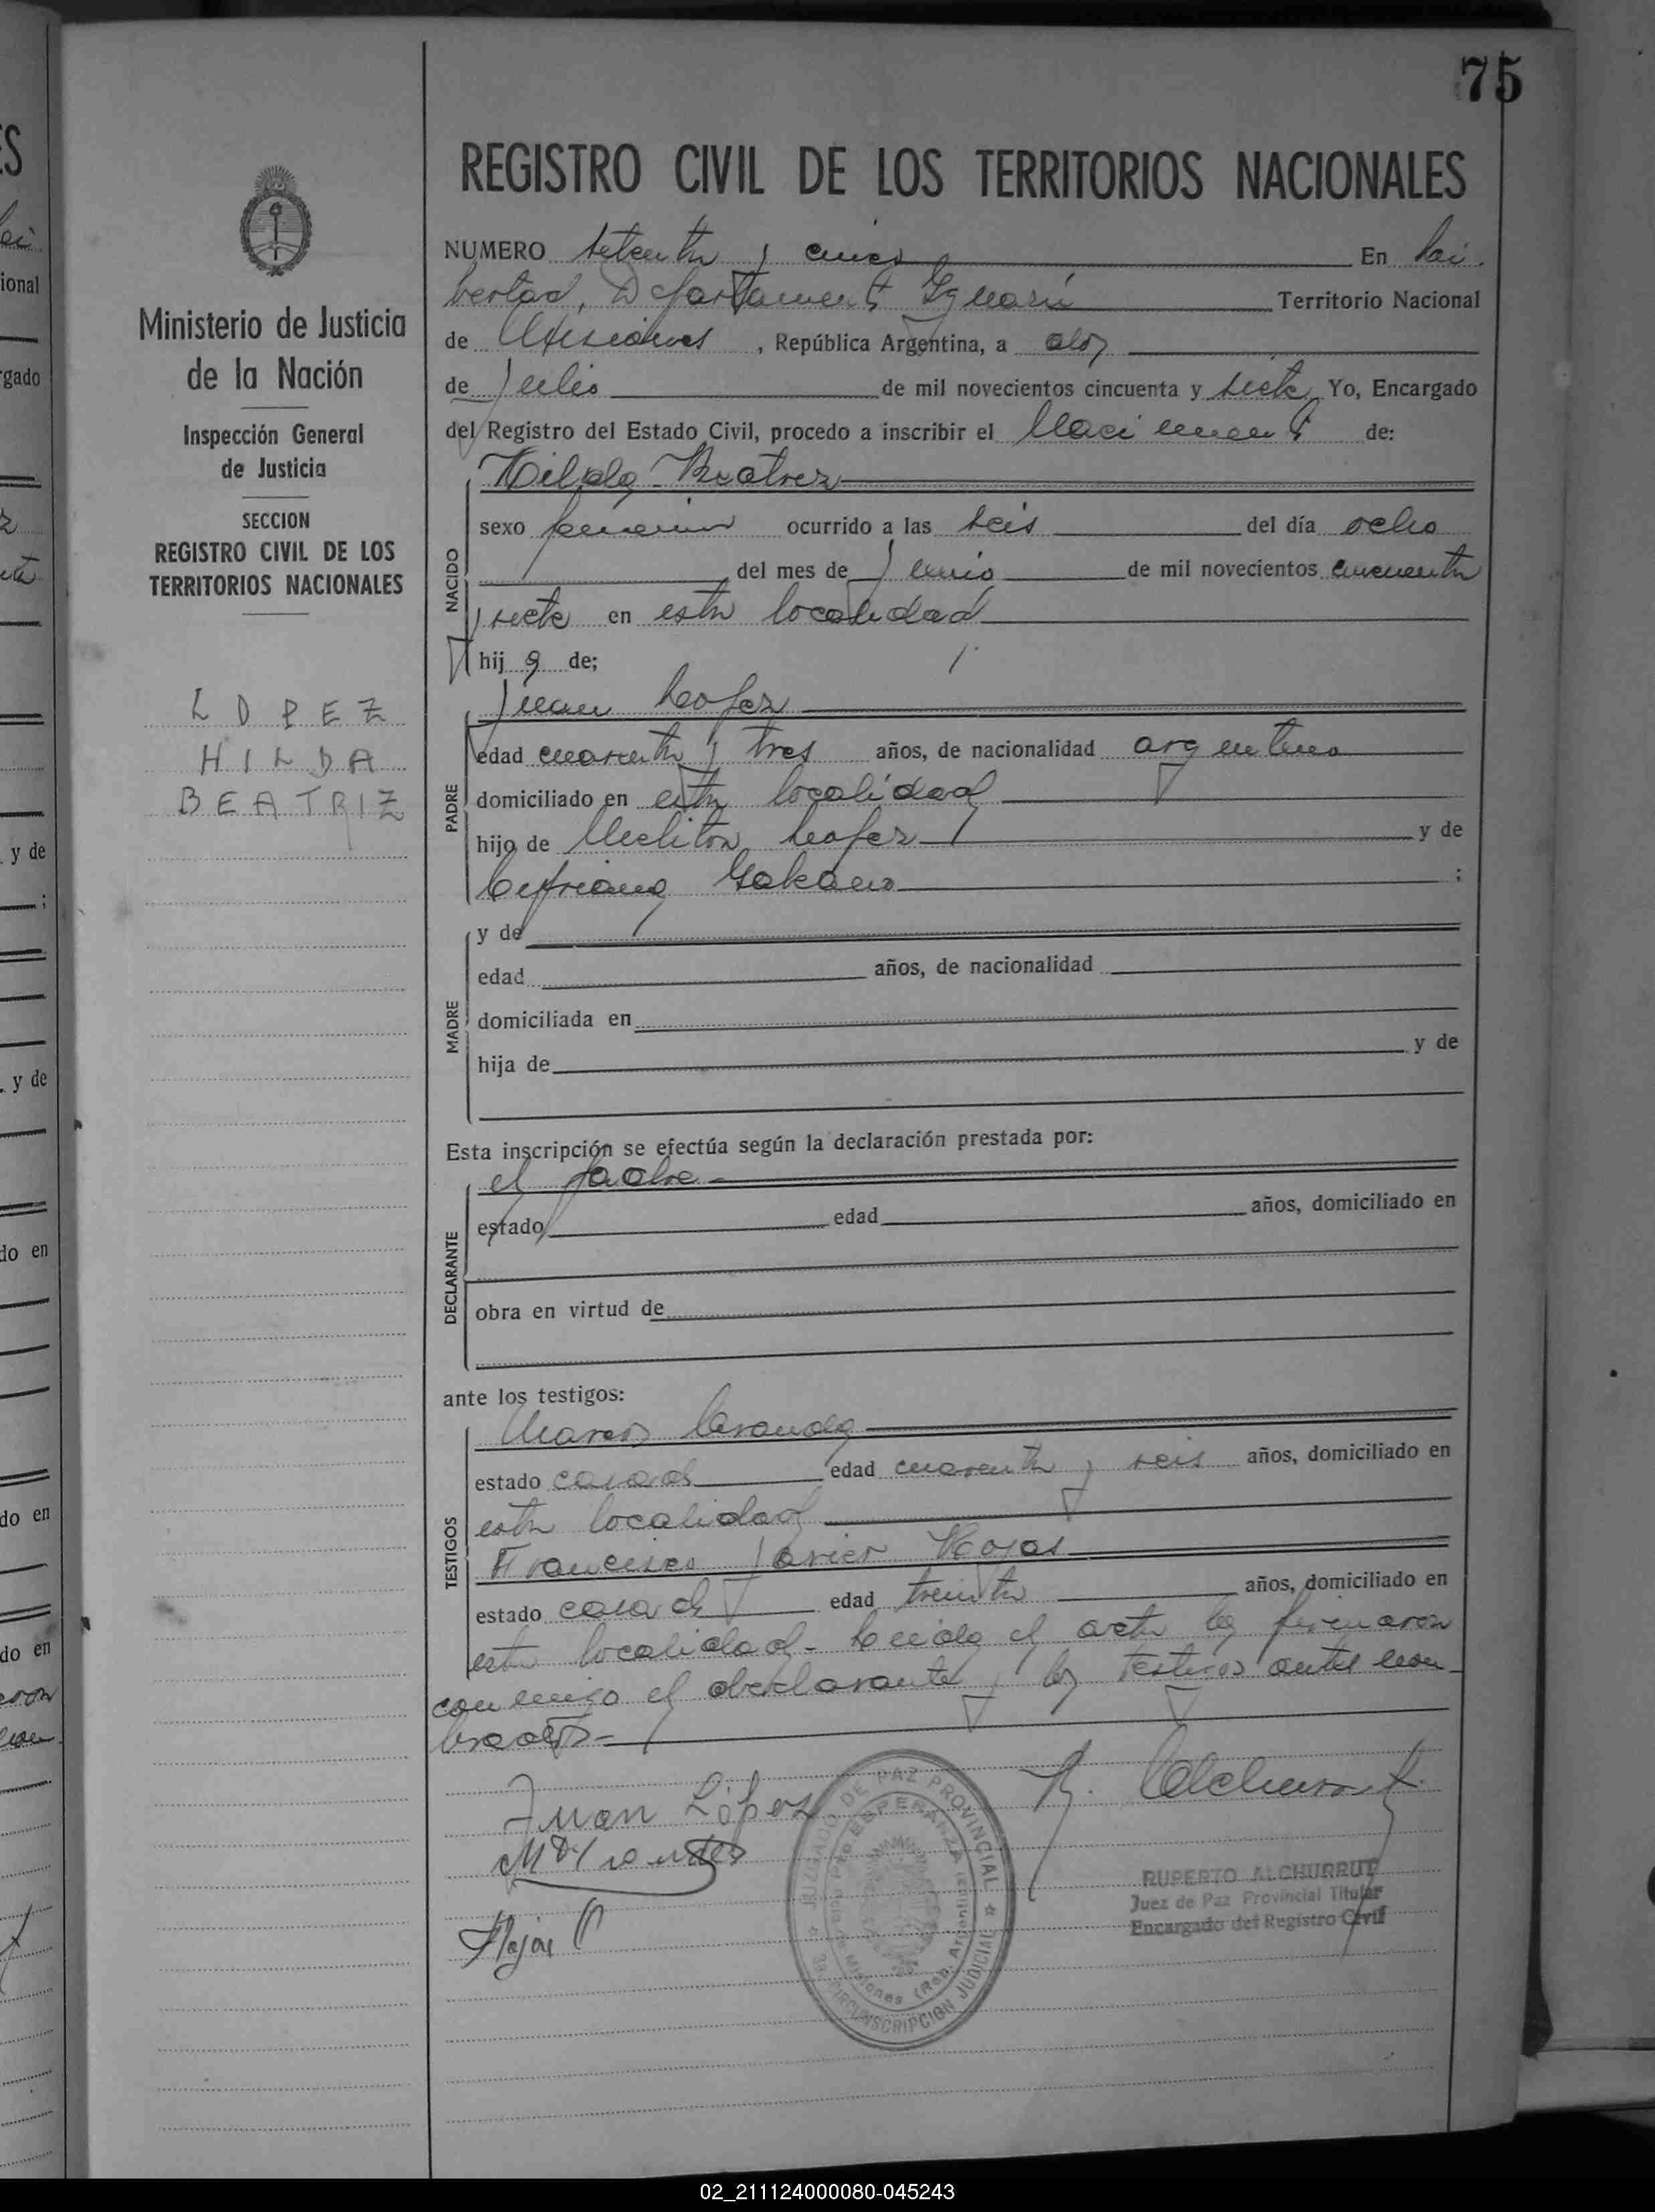 75
REGISTRO CIVIL DE LOS TERRITORIOS NACIONALES
Ministerio de Justicia
de la Nación
Inspección General
de Justicia
SECCION
REGISTRO CIVIL DE LOS
TERRITORIOS NACIONALES
LOPEZ
HILDA
BEATRIZ
NUMERO setenta y cinco En Li-
bertad, Departamento Iguazú Territorio Nacional
de Misiones, República Argentina, a dos
de Julio de mil novecientos cincuenta y siete Yo, Encargado
del Registro del Estado Civil, procedo a inscribir el Nacimiento de:
NACIDO
Hilda Beatriz
sexo femenino ocurrido a las seis del día ocho
del mes de Junio de mil novecientos cincuenta
y siete en esta localidad
hij a de;
PADRE
Juan Lopez
edad cuarenta y tres años, de nacionalidad argentino
domiciliado en esta localidad
hijo de Meliton Lopez y de
Cipriana ;
MADRE
y de
edad años, de nacionalidad
domiciliada en
hija de y de
Esta inscripción se efectúa según la declaración prestada por:
DECLARANTE
el padre-
estado edad años, domiciliado en
obra en virtud de
ante los testigos:
TESTIGOS
Marcos
estado casado edad cuarenta y seis años, domiciliado en
esta localidad
Francisco Javier Rojas
estado casado edad treinta años, domiciliado en
esta localidad- Leida el acta la firmaron
conmigo el declarante y los testigos antes nom-
brados-
Juan López
Rojas
R. Alchurrut
JUZGADO DE PAZ PROVINCIAL
3a CIRCUNSCRIPCION JUDICIAL
Pto. ESPERANZA
Misiones (Rep. Argentina)
RUPERTO ALCHURRUT
Juez de Paz Provincial Titular
Encargado del Registro Civil
02_211124000080-045243